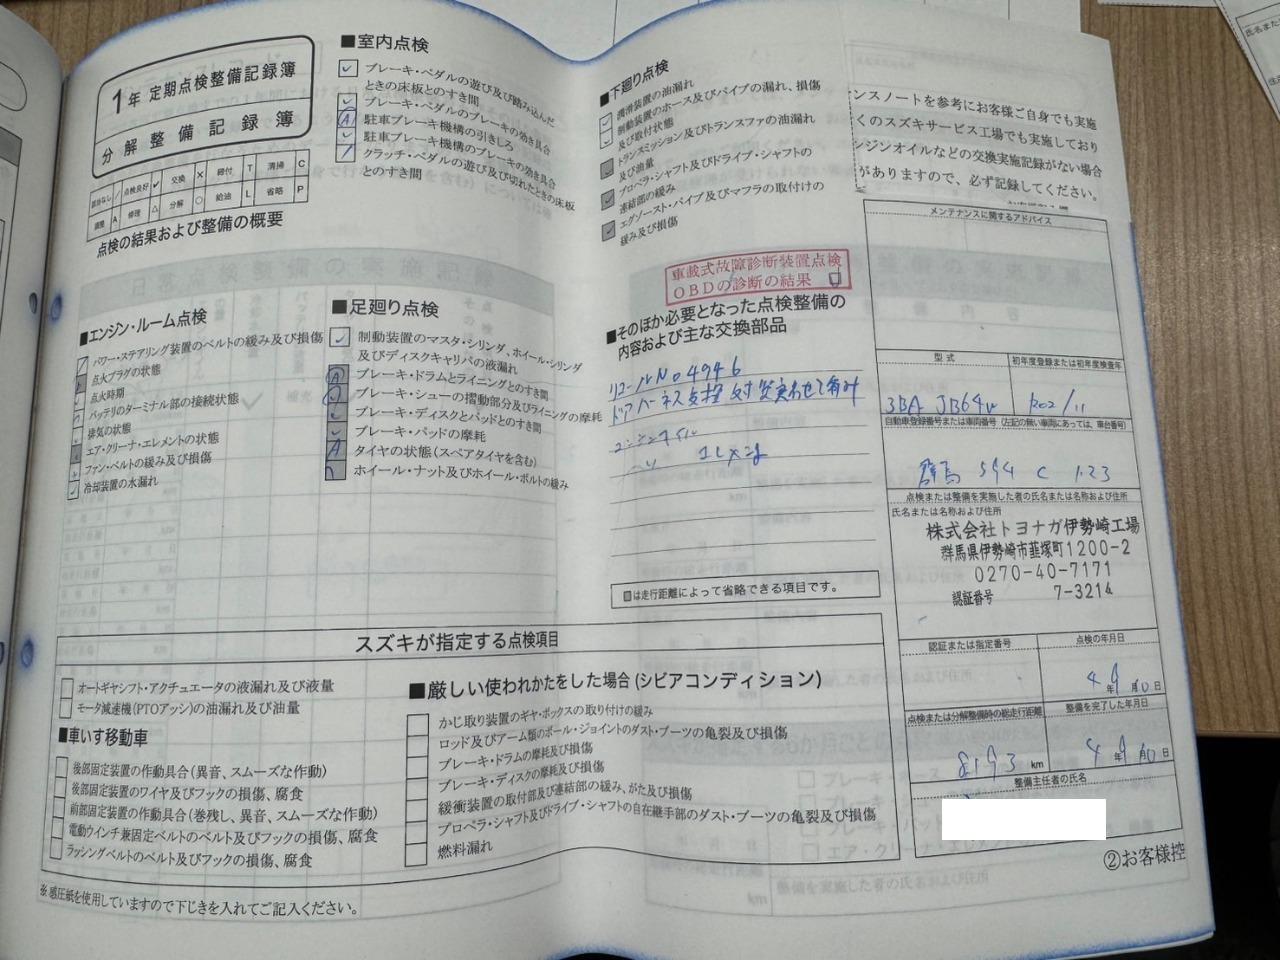 1年 定期点検整備記録簿
分解整備記録簿
該当なし / 点検良好 ✓ 交換 × 締付 T 清掃 C
調整 A 修理 △ 分解 ○ 給油 L 省略 P
点検の結果および整備の概要
■エンジン・ルーム点検
パワー・ステアリング装置のベルトの緩み及び損傷
点火プラグの状態
点火時期
バッテリのターミナル部の接続状態
排気の状態
エア・クリーナ・エレメントの状態
ファン・ベルトの緩み及び損傷
冷却装置の水漏れ
■室内点検
ブレーキ・ペダルの遊び及び踏み込んだ
ときの床板とのすき間
ブレーキ・ペダルのブレーキの効き具合
駐車ブレーキ機構の引きしろ
駐車ブレーキ機構のブレーキの効き具合
クラッチ・ペダルの遊び及び切れたときの床板
とのすき間
■足廻り点検
制動装置のマスタ・シリンダ、ホイール・シリンダ
及びディスクキャリパの液漏れ
ブレーキ・ドラムとライニングとのすき間
ブレーキ・シューの摺動部分及びライニングの摩耗
ブレーキ・ディスクとパッドとのすき間
ブレーキ・パッドの摩耗
タイヤの状態(スペアタイヤを含む)
ホイール・ナット及びホイール・ボルトの緩み
■下廻り点検
潤滑装置の油漏れ
制動装置のホース及びパイプの漏れ、損傷
及び取付状態
トランスミッション及びトランスファの油漏れ
及び油量
プロペラ・シャフト及びドライブ・シャフトの
連結部の緩み
エグゾースト・パイプ及びマフラの取付けの
緩み及び損傷
車載式故障診断装置点検
OBDの診断の結果
■そのほか必要となった点検整備の
内容および主な交換部品
リコールNo 4946
ドアハーネス支持
□は走行距離によって省略できる項目です。
ンスノートを参考にお客様ご自身でも実施
くのスズキサービス工場でも実施しており
ンジンオイルなどの交換実施記録がない場合
がありますので、必ず記録してください。
メンテナンスに関するアドバイス
型式 初年度登録または初年度検査年
3BA JB64W R02/11
自動車登録番号または車両番号(左記の無い車両にあっては、車台番号)
群馬 594 C 123
点検または整備を実施した者の氏名または名称および住所
氏名または名称および住所
株式会社トヨナガ伊勢崎工場
群馬県伊勢崎市韮塚町1200-2
0270-40-7171
認証番号 7-3214
認証または指定番号 点検の年月日
4年 9月 10日
点検または分解整備時の総走行距離 整備を完了した年月日
8193 km 4年 9月 10日
整備主任者の氏名
②お客様控
スズキが指定する点検項目
オートギヤシフト・アクチュエータの液漏れ及び液量
モータ減速機(PTOアッシ)の油漏れ及び油量
■車いす移動車
後部固定装置の作動具合(異音、スムーズな作動)
後部固定装置のワイヤ及びフックの損傷、腐食
前部固定装置の作動具合(巻残し、異音、スムーズな作動)
電動ウインチ兼固定ベルトのベルト及びフックの損傷、腐食
ラッシングベルトのベルト及びフックの損傷、腐食
■厳しい使われかたをした場合(シビアコンディション)
かじ取り装置のギヤ・ボックスの取付けの緩み
ロッド及びアーム類のボール・ジョイントのダスト・ブーツの亀裂及び損傷
ブレーキ・ドラムの摩耗及び損傷
ブレーキ・ディスクの摩耗及び損傷
緩衝装置の取付部及び連結部の緩み、がた及び損傷
プロペラ・シャフト及びドライブ・シャフトの自在継手部のダスト・ブーツの亀裂及び損傷
燃料漏れ
※感圧紙を使用していますので下じきを入れてご記入ください。